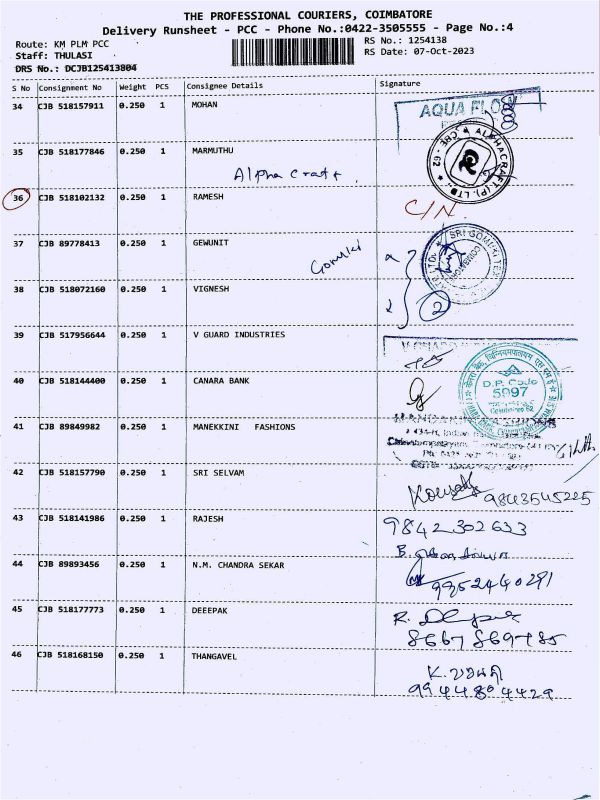 THE PROFESSIONAL COURIERS, COIMBATORE
Delivery Runsheet - PCC - Phone No.:0422-3505555 - Page No.:4
Route: KM PLM PCC
RS No.: 1254138
Staff: THULASI
RS Date: 07-Oct-2023
DRS No.: DCJB125413804
S No Consignment No Weight PCS Consignee Details Signature
34 CJB 518157911 0.250 1 MOHAN
AQUA FLOW
35 CJB 518177846 0.250 1 MARMUTHU
ALPHACRAFT (P). LTD. CBE - 62
Alpha Craft
36 CJB 518102132 0.250 1 RAMESH
C/N.
37 CJB 89778413 0.250 1 GEWUNIT
SRI GOMUKI TEX
Gomuki
38 CJB 518072160 0.250 1 VIGNESH
2
39 CJB 517956644 0.250 1 V GUARD INDUSTRIES
40 CJB 518144400 0.250 1 CANARA BANK
D.P. Code
5997
41 CJB 89849982 0.250 1 MANEKKINI FASHIONS
42 CJB 518157790 0.250 1 SRI SELVAM
9843545225
43 CJB 518141986 0.250 1 RAJESH
9842302633
44 CJB 89893456 0.250 1 N.M. CHANDRA SEKAR
9952440291
45 CJB 518177773 0.250 1 DEEEPAK
8667869785
46 CJB 518168150 0.250 1 THANGAVEL
9944804429